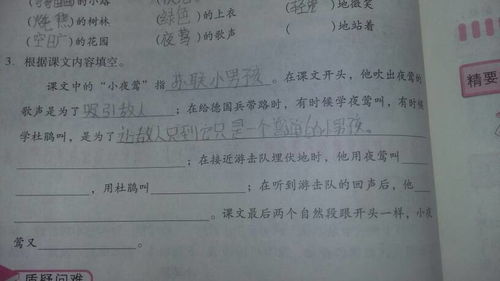 的小路
(烧焦)的树林 (绿色)的上衣 (轻蔑)地微笑
(空旷)的花园 (夜莺)的歌声 ( )地站着
3. 根据课文内容填空。
课文中的“小夜莺”指 苏联小男孩 。在课文开头,他吹出夜莺的
歌声是为了 吸引敌人 ;在给德国兵带路时,有时候学夜莺叫,有时候
学杜鹃叫,是为了 让敌人只到它只是一个普通的小男孩。
;在接近游击队埋伏地时,他用夜莺叫
,用杜鹃叫 ;在听到游击队的回声后,他
。课文最后两个自然段跟开头一样,小夜
莺又 。
质疑问难
精要